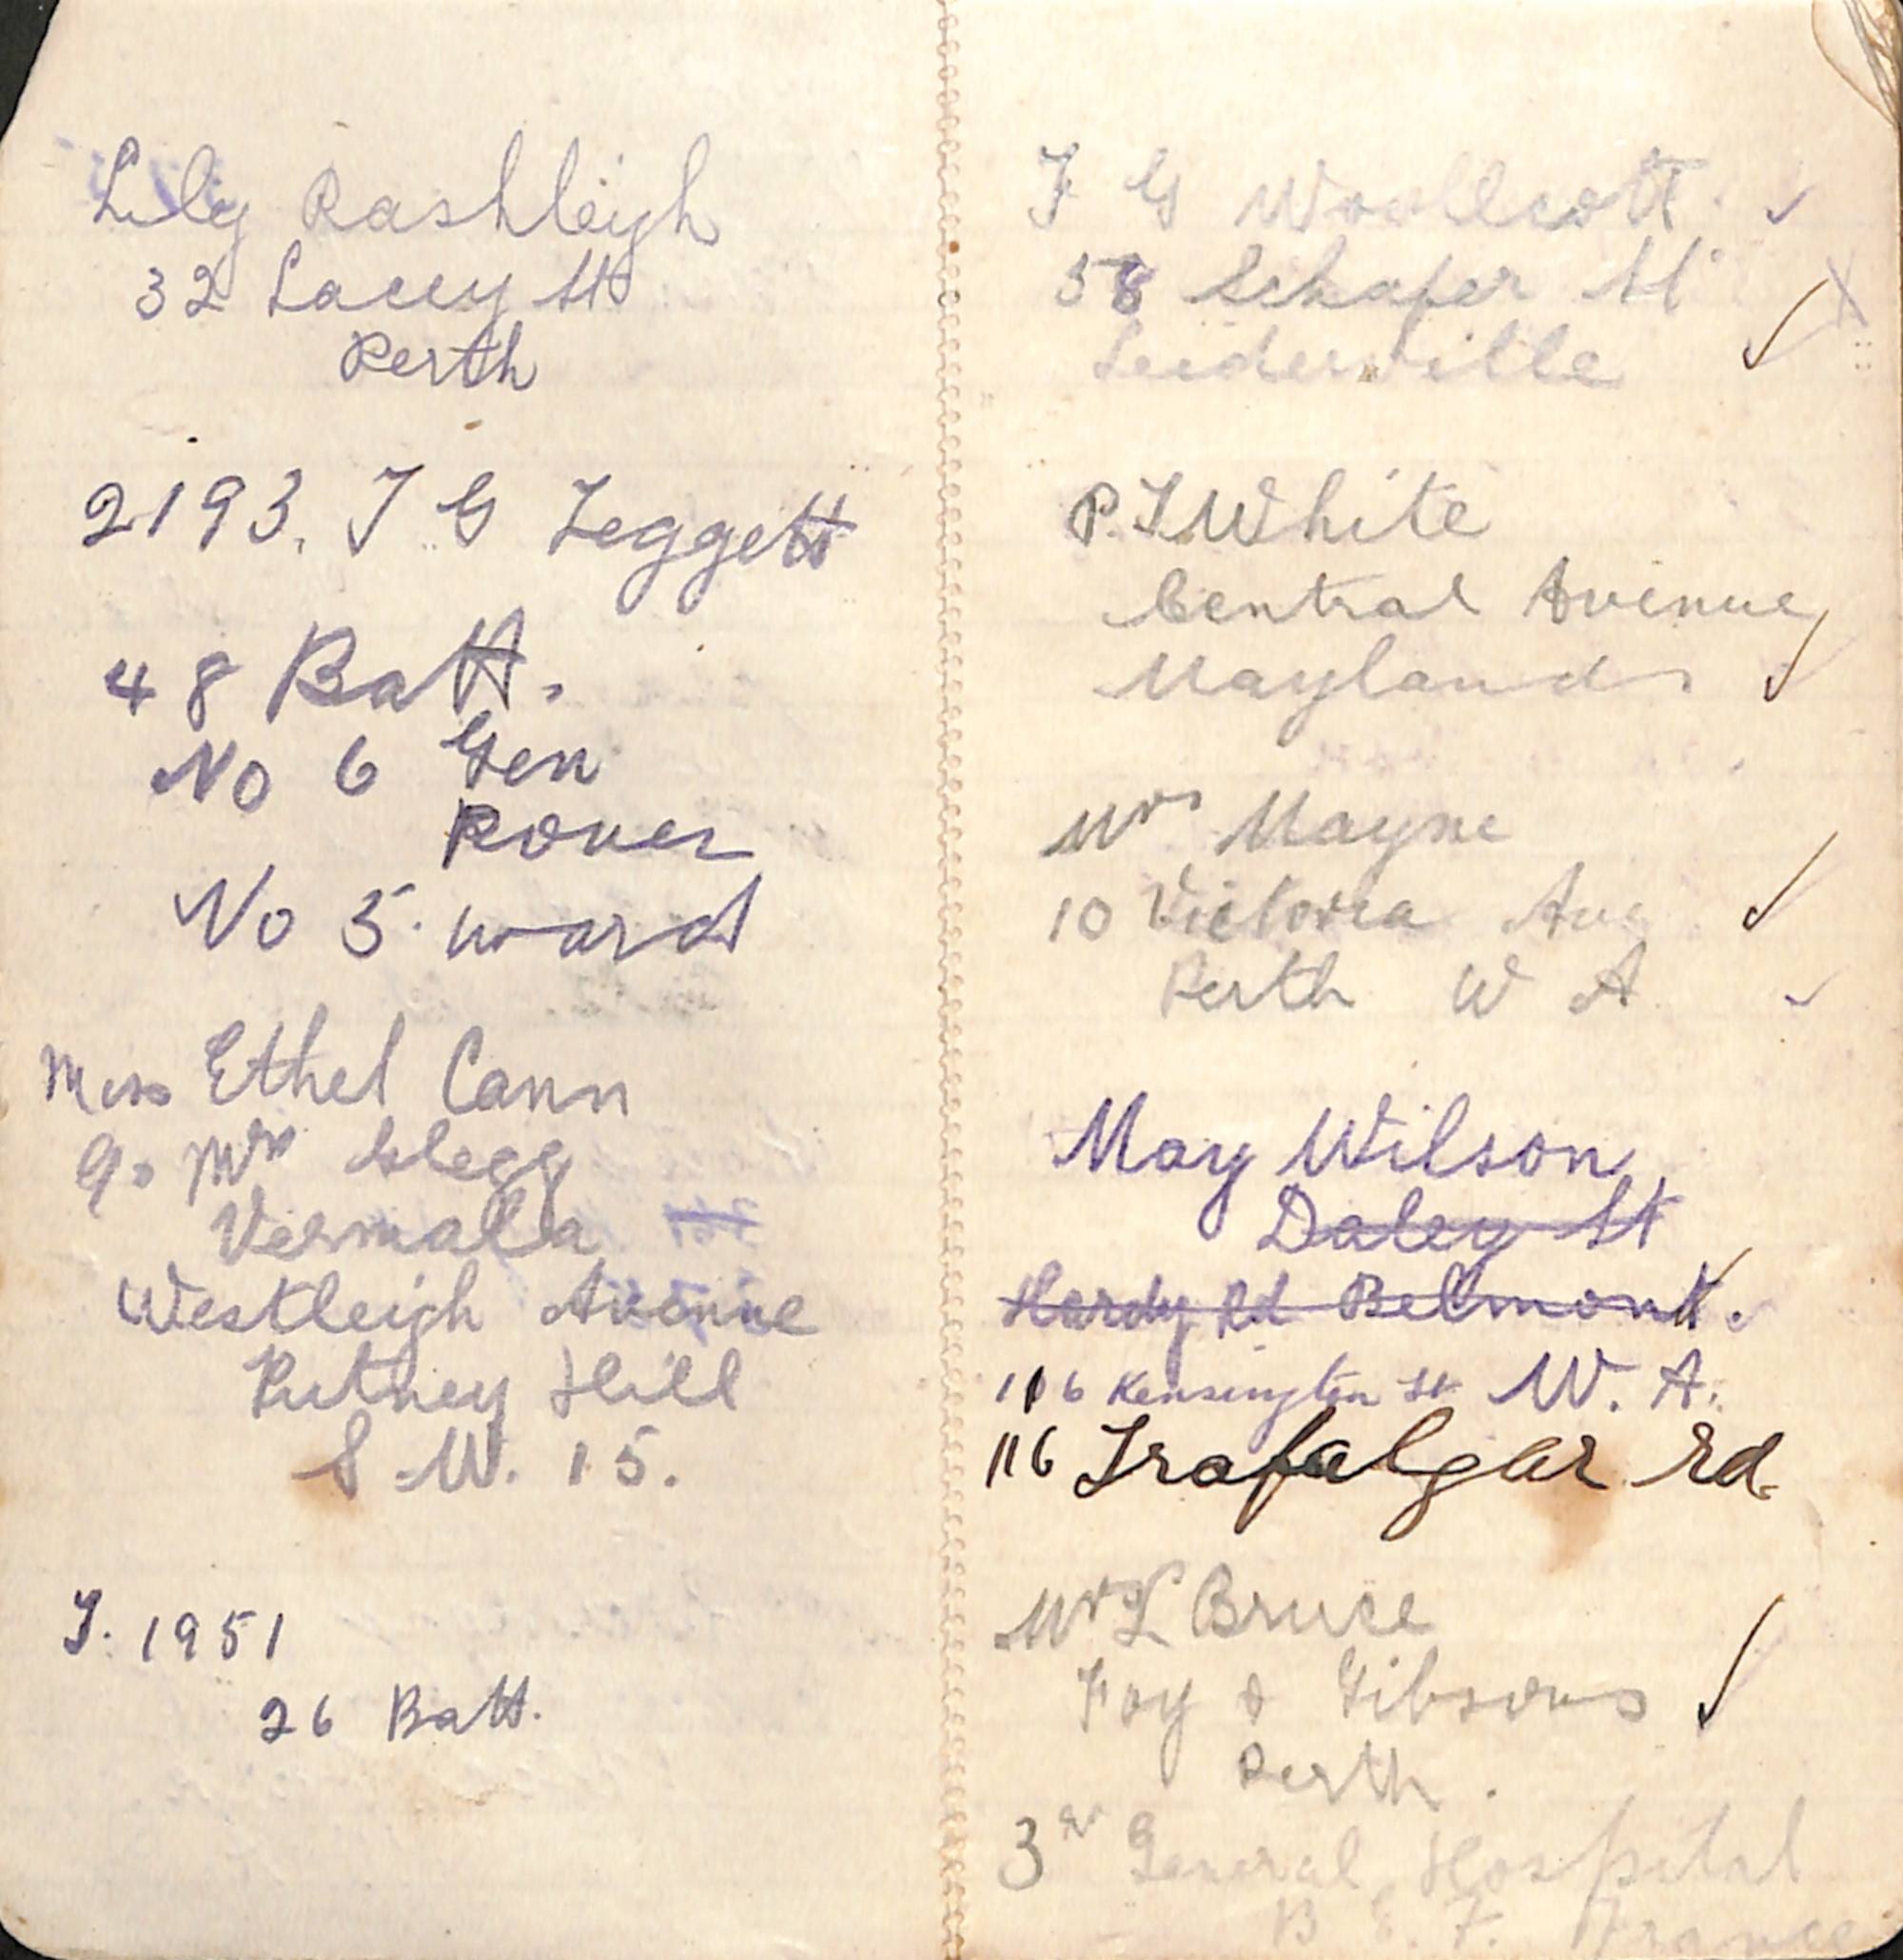 Lily Rashleigh
32 Lacey St
Perth
2193. J G Leggett
48 Batt.
No 6 Gen
Rouen
No 5. ward
Miss Ethel Cann
c/o Mrs Clegg
Vermala
Westleigh Avenue
Putney Hill
S.W. 15.
J. 1951
26 Batt.
F G Woollcott.
58 Schafer St
Leederville
P. J White
Central Avenue
Maylands
Mrs Mayne
10 Victoria Ave
Perth W A
May Wilson
Daley St
Hardy Rd Belmont.
116 Kensington St W. A.
116 Trafalgar Rd.
Mrs L Bruce
Foy & Gibsons
Perth.
3rd General Hospital
B E F. France